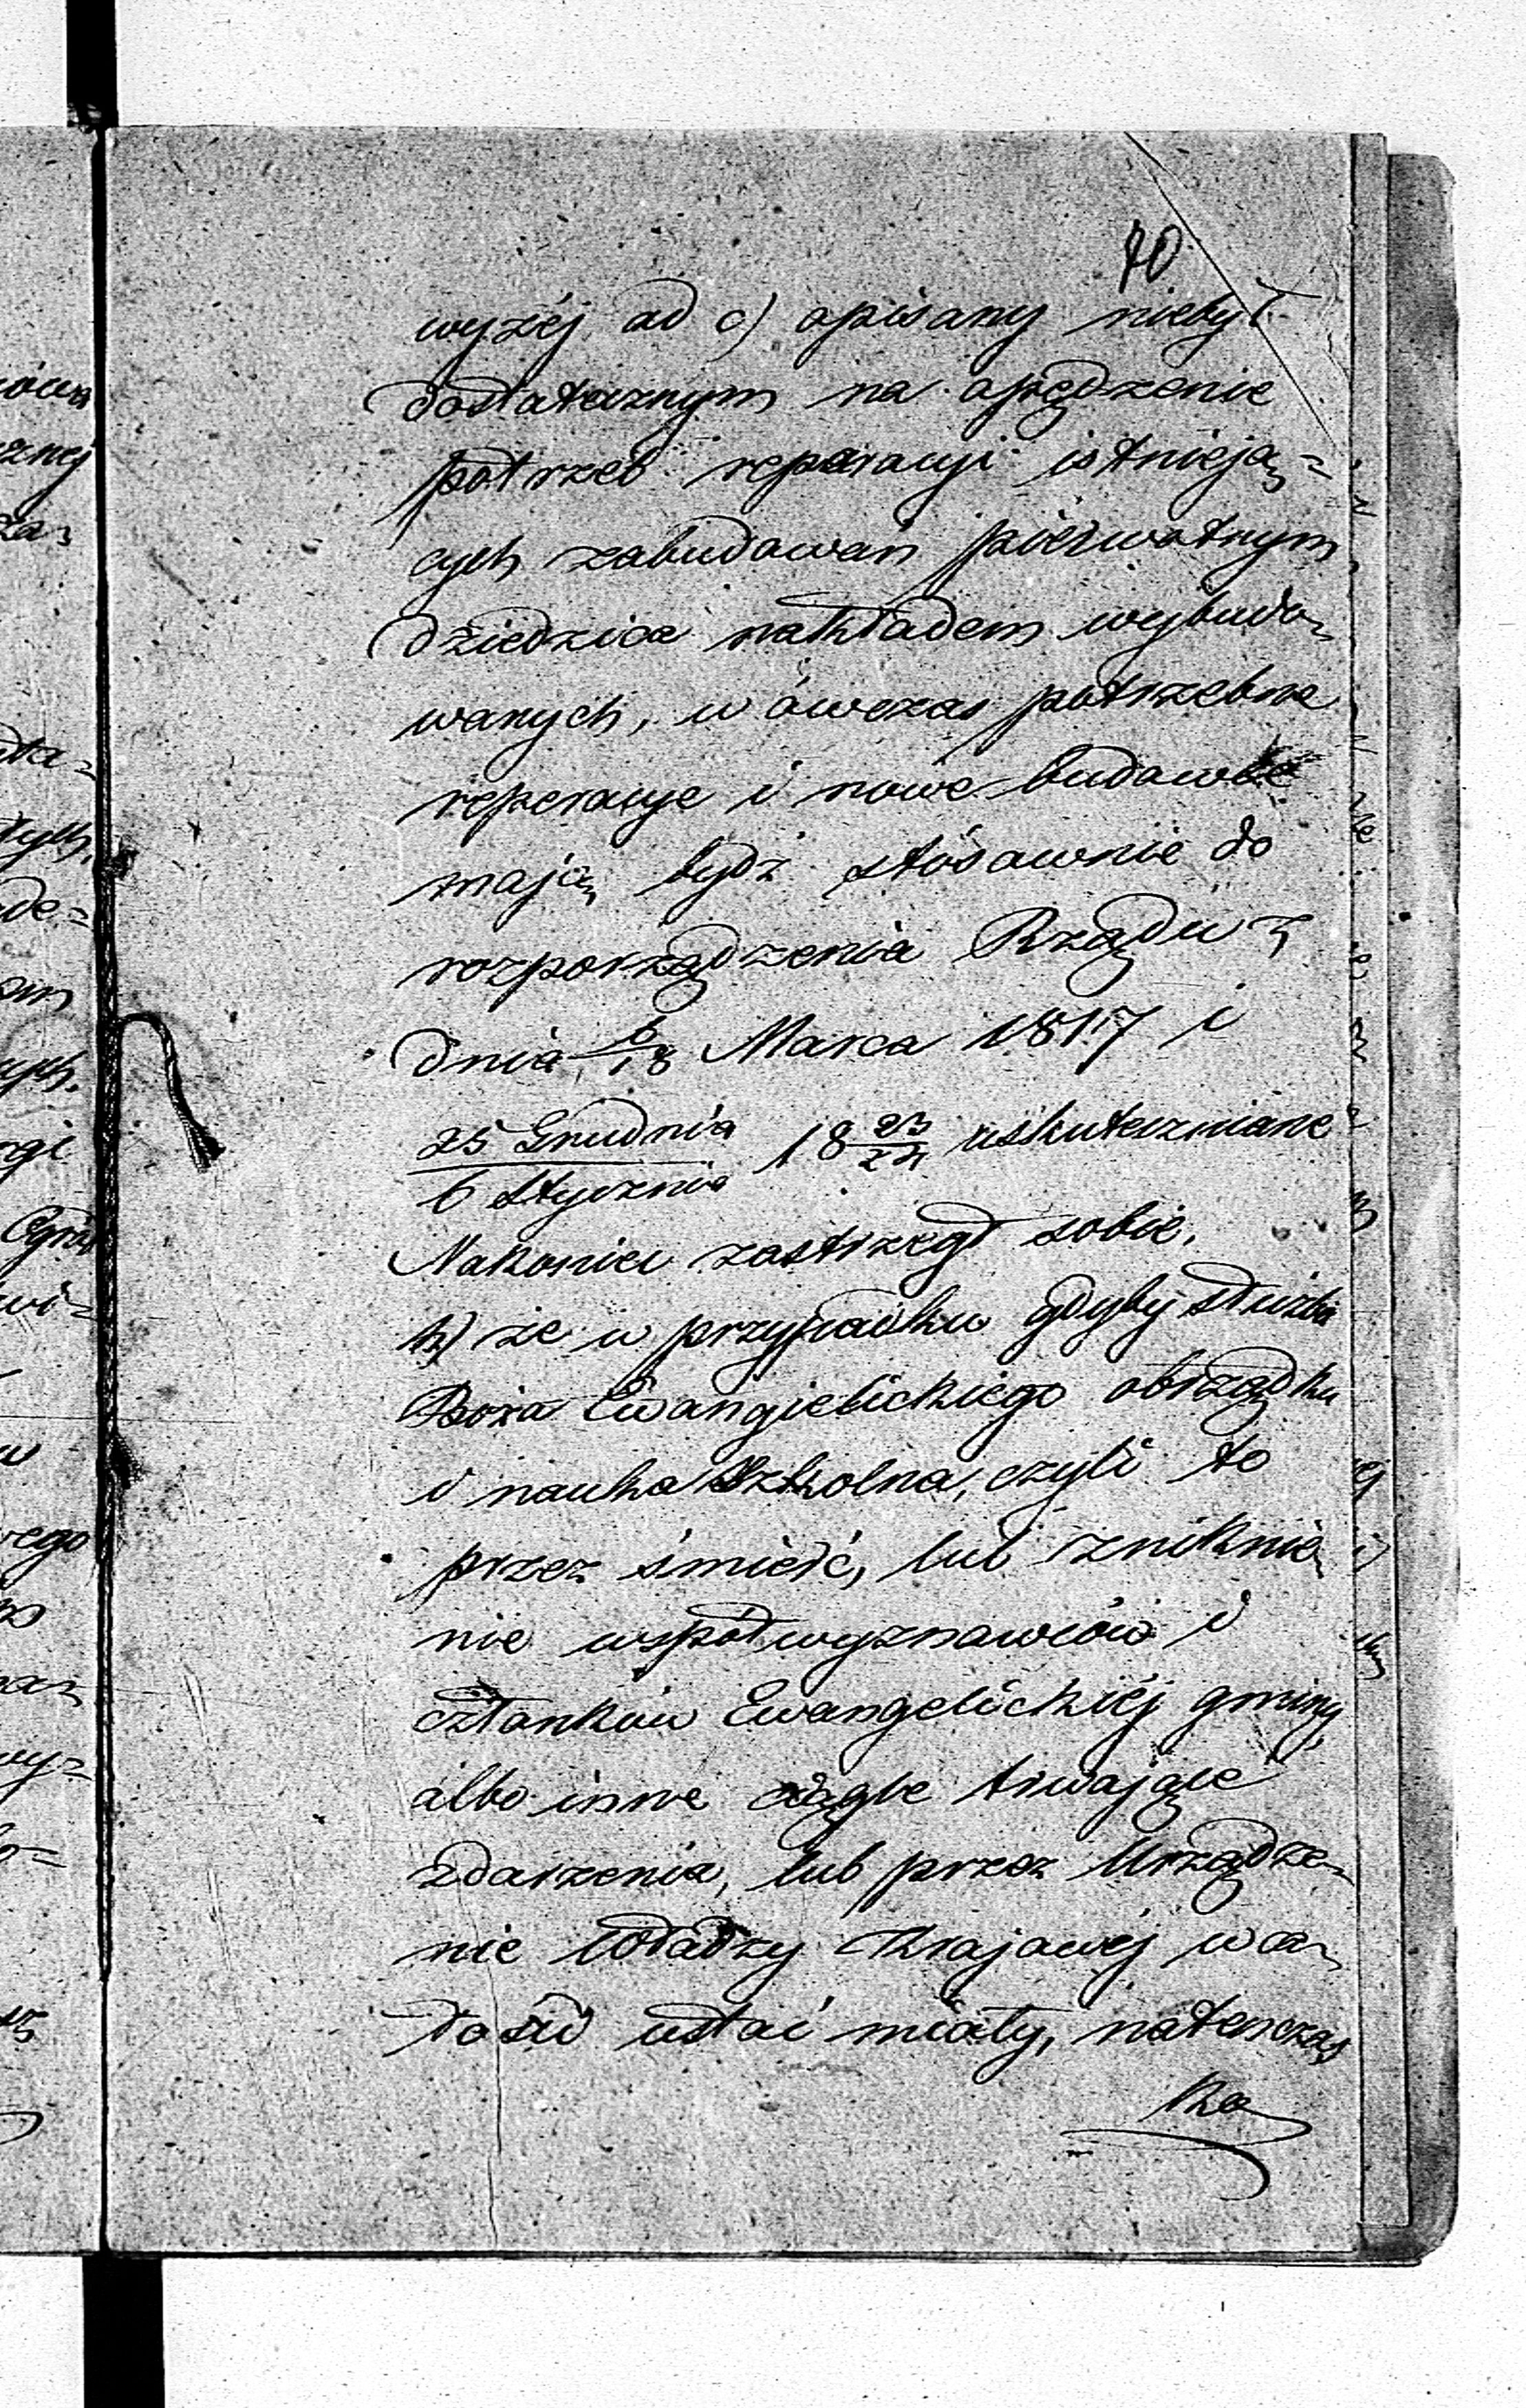 70
wyżéj ad c) opisany niebył
dostatecznym na opędzenie
potrzeb reperacyi istnieją=
cych zabudowań pierwotnym
dziedzica nakładem wybudo=
wanych, w ówczas potrzebne
reperacye i nowe budowle
mają bydź stósownie do
rozporządzenia Rządu z
dnia 6/18 Marca 1817 i
25 Grudnia/6 Stycznia 18 23/24 uskutecznione
Nakoniec zastrzegł sobie,
h) że w przypadku gdyby służba
Boża Ewangielickiego obrządku
i nauka Szkolna, czyli to
przez śmierć, lub zniknie=
nie współwyznawców i
członków Ewangelickiéj gminy,
albo inne ciągle trwające
zdarzenia, lub przez Urządze=
nie Władzy Krajowéj w ca=
łości ustać miały, natenczas